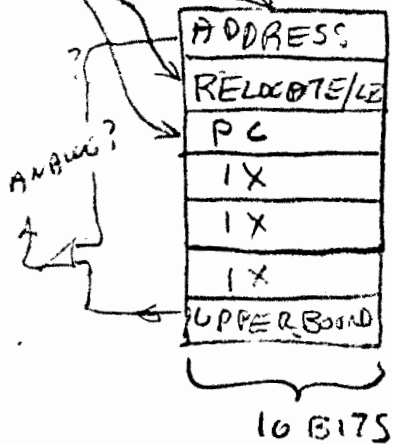 ?
ADDRESS
RELOCATE/LB
PC
IX
IX
IX
UPPER BOUND
16 BITS